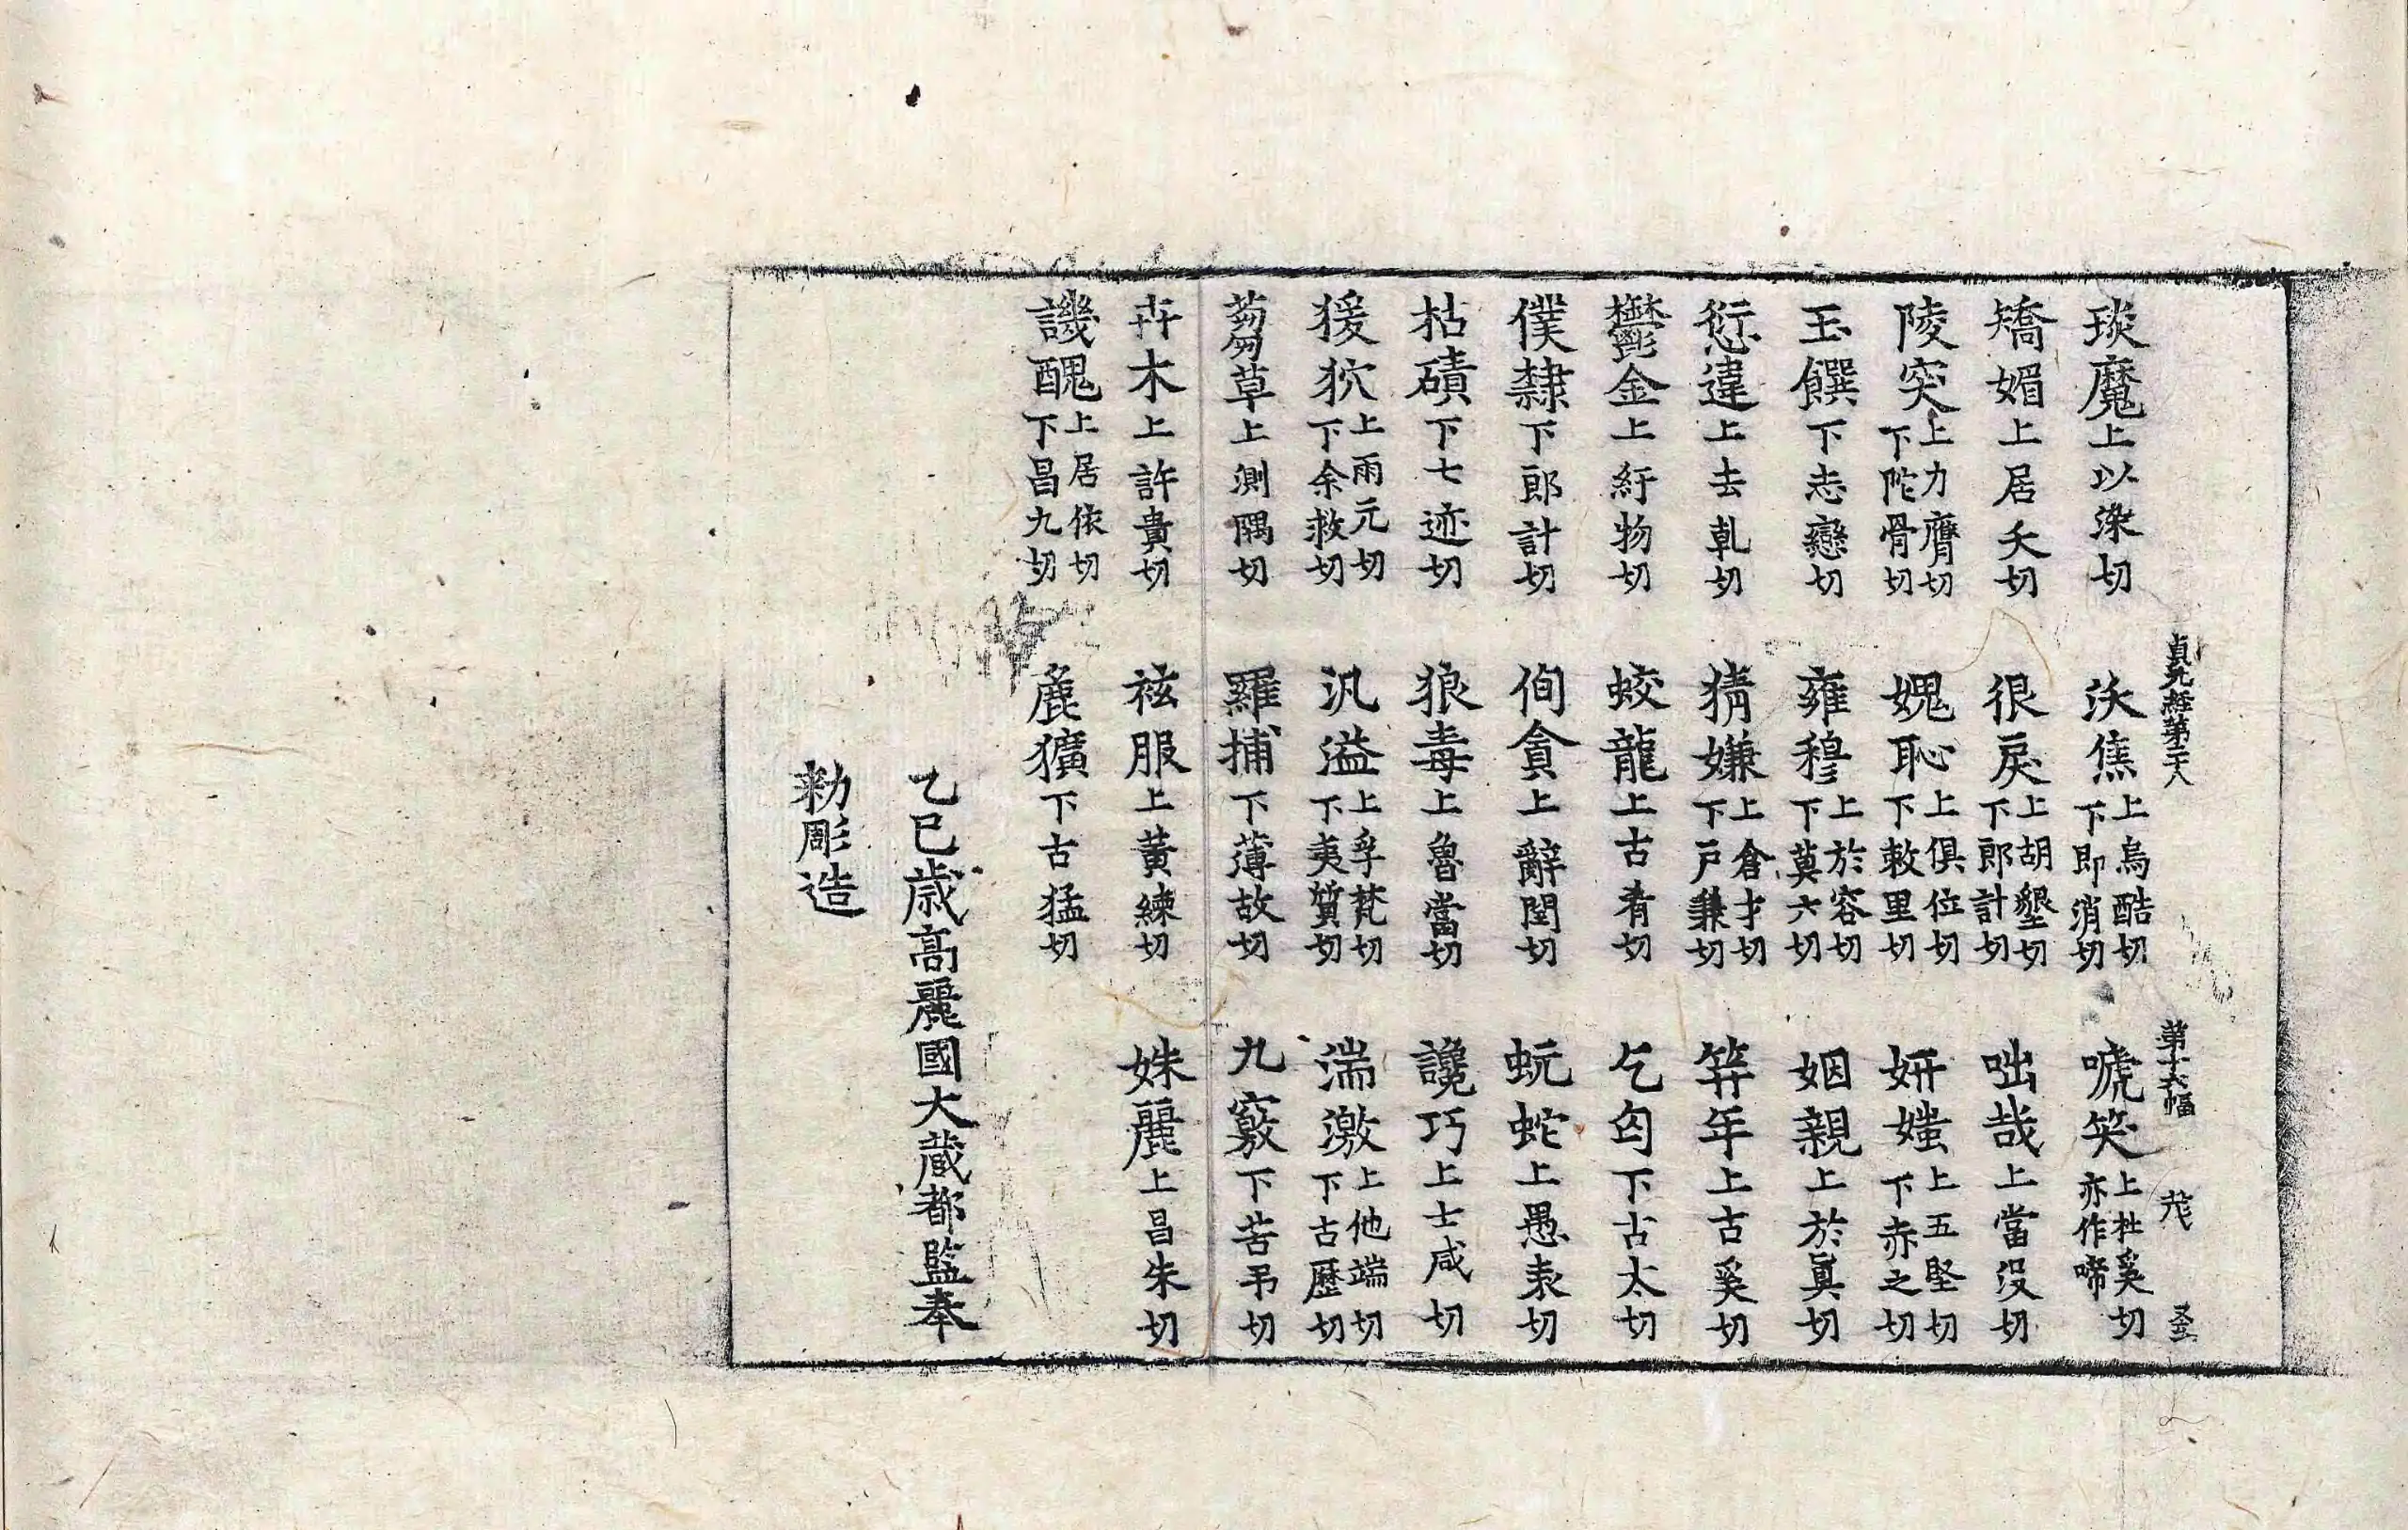 貞元經第三十八 第十六幅 茂
琰魔上以染切 沃焦上烏酷切下即消切 嗁笑上杜奚切亦作啼
矯媚上居夭切 很戾上胡墾切下郎計切 咄哉上當没切
陵突上力膺切下陁骨切 媿恥上俱位切下敕里切 妍媸上五堅切下赤之切
玉饌下志戀切 雍穆上於容切下莫六切 姻親上於真切
愆違上去乹切 猜嫌上倉才切下戶兼切 筓年上古奚切
鬱金上紆物切 蛟龍上古肴切 乞匃下古太切
僕隸下郎計切 侚貪上辭閏切 蚖蛇上愚表切
枯磧下七迹切 狼毒上魯當切 讒巧上士咸切
猨狖上雨元切下余救切 汎溢上孚梵切下夷質切 湍激上他端切下古歷切
蒭草上測隅切 羅捕下薄故切 九竅下苦弔切
卉木上許貴切 袨服上黃練切 姝麗上昌朱切
譏醜上居依切下昌九切 麁獷下古猛切
乙巳歲高麗國大藏都監奉
勑彫造